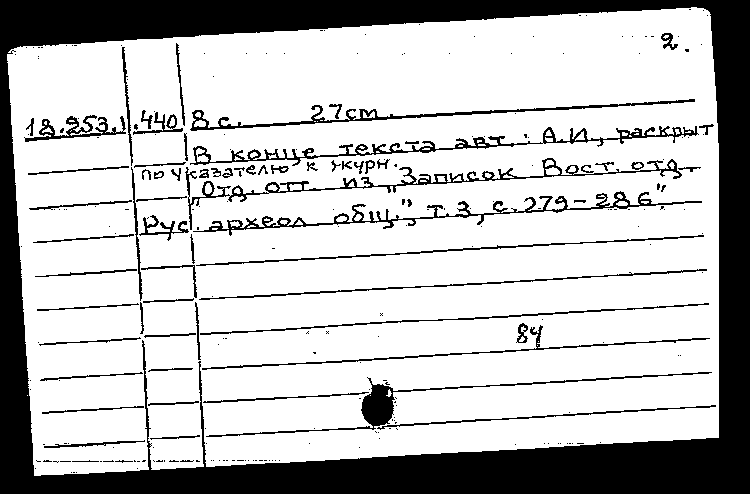 2.
18.253.1.440 8 с. 27cm.
В конце текста авт.: А.И., раскрыт
по указателю к журн.
"Отд. отт. из „Записок Вост. отд.
Рус. археол общ.", т.3, с.279-286".
84